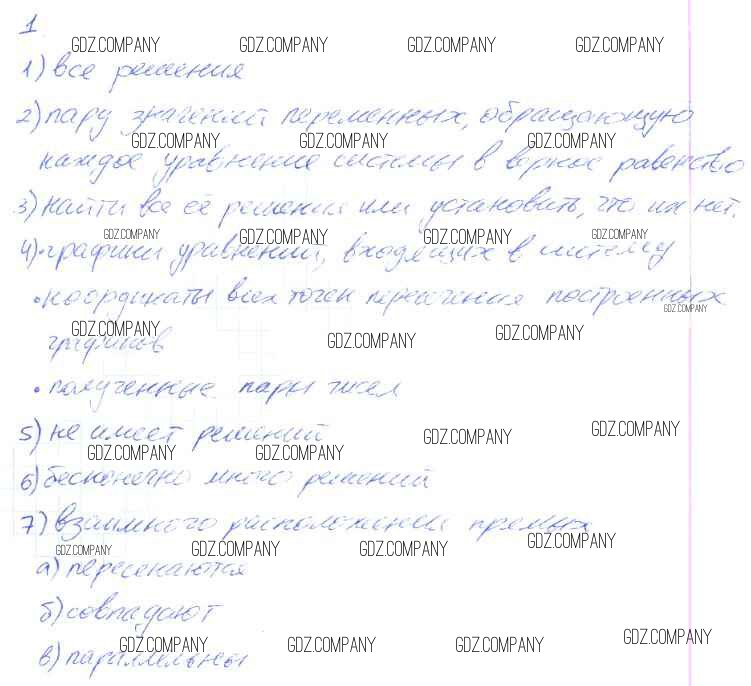 1
GDZ.COMPANY GDZ.COMPANY GDZ.COMPANY GDZ.COMPANY
1) все решения
2) пару значений переменных, обращающую
GDZ.COMPANY GDZ.COMPANY GDZ.COMPANY
каждое уравнение системы в верное равенство
3) найти все её решения или установить, что их нет.
GDZ.COMPANY GDZ.COMPANY GDZ.COMPANY GDZ.COMPANY
4) • графики уравнений, входящих в систему
• координаты всех точек пересечения построенных
GDZ.COMPANY
GDZ.COMPANY GDZ.COMPANY GDZ.COMPANY
графиков
• полученные пары чисел
5) не имеет решений
GDZ.COMPANY GDZ.COMPANY
GDZ.COMPANY GDZ.COMPANY
6) бесконечно много решений
7) взаимного расположения прямых
GDZ.COMPANY GDZ.COMPANY GDZ.COMPANY GDZ.COMPANY
а) пересекаются
б) совпадают
GDZ.COMPANY GDZ.COMPANY GDZ.COMPANY GDZ.COMPANY
в) параллельны